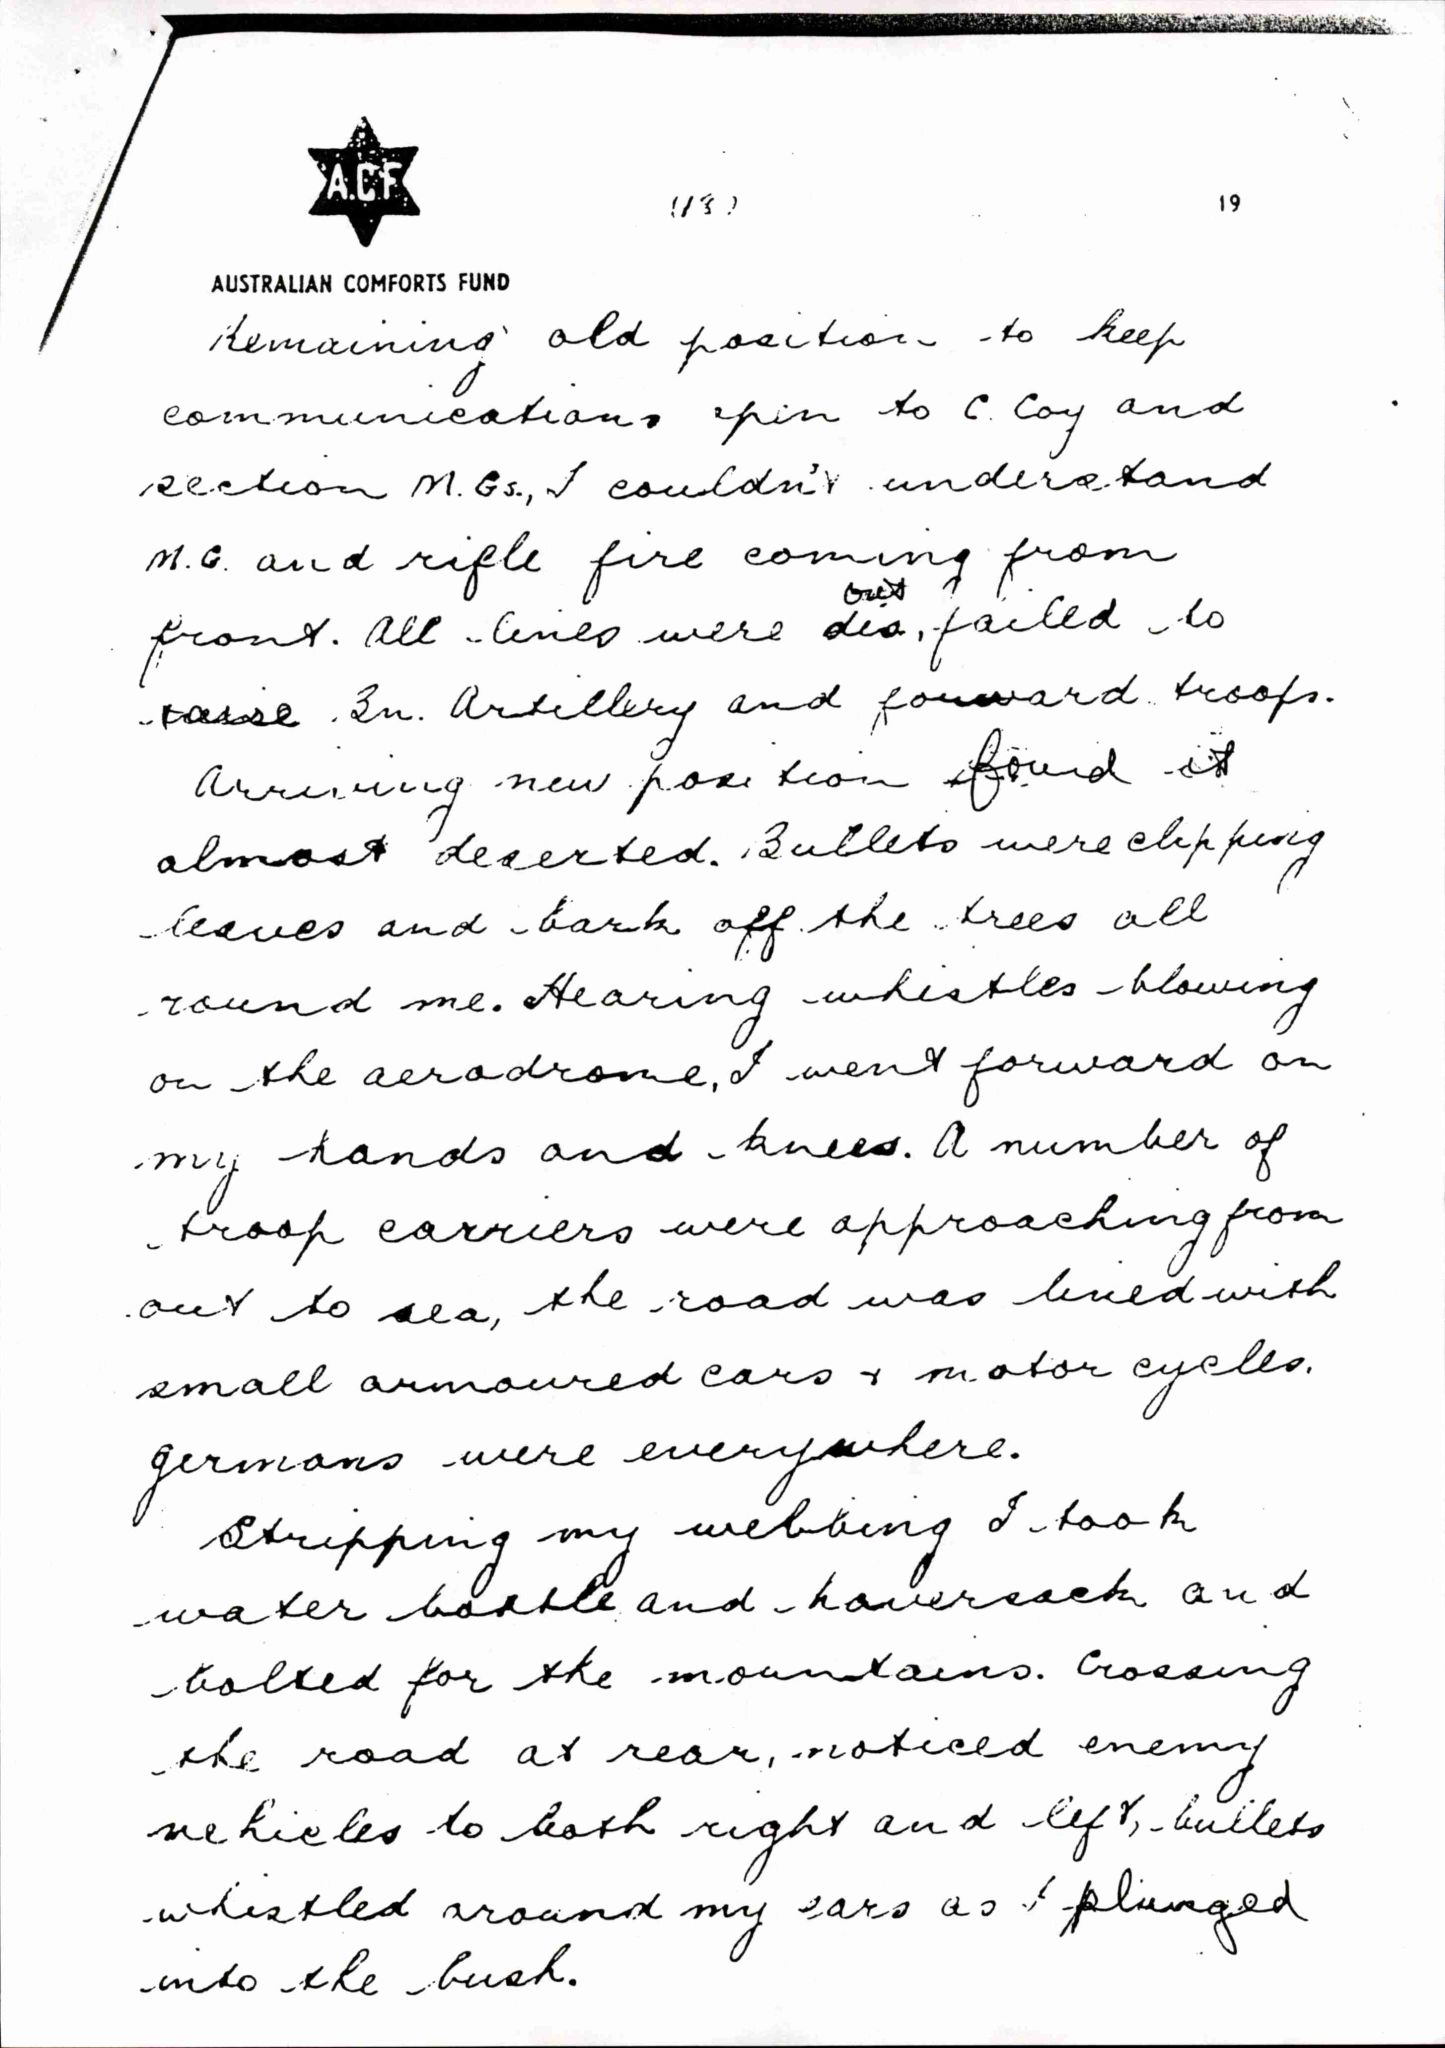 A.C.F
(13)
19
AUSTRALIAN COMFORTS FUND
Remaining old position to keep
communications open to C. Coy and
section M.Gs., I couldn't understand
M.G. and rifle fire coming from
front. All lines were out dis, failed to
raise Bn. Artillery and forward troops.
Arriving new position found it
almost deserted. Bullets were clipping
leaves and bark off the trees all
round me. Hearing whistles blowing
on the aerodrome, I went forward on
my hands and knees. A number of
troop carriers were approaching from
out to sea, the road was lined with
small armoured cars & motor cycles.
Germans were everywhere.
Stripping my webbing I took
water bottle and haversack and
bolted for the mountains. Crossing
the road at rear, noticed enemy
vehicles to both right and left, bullets
whistled around my ears as I plunged
into the bush.